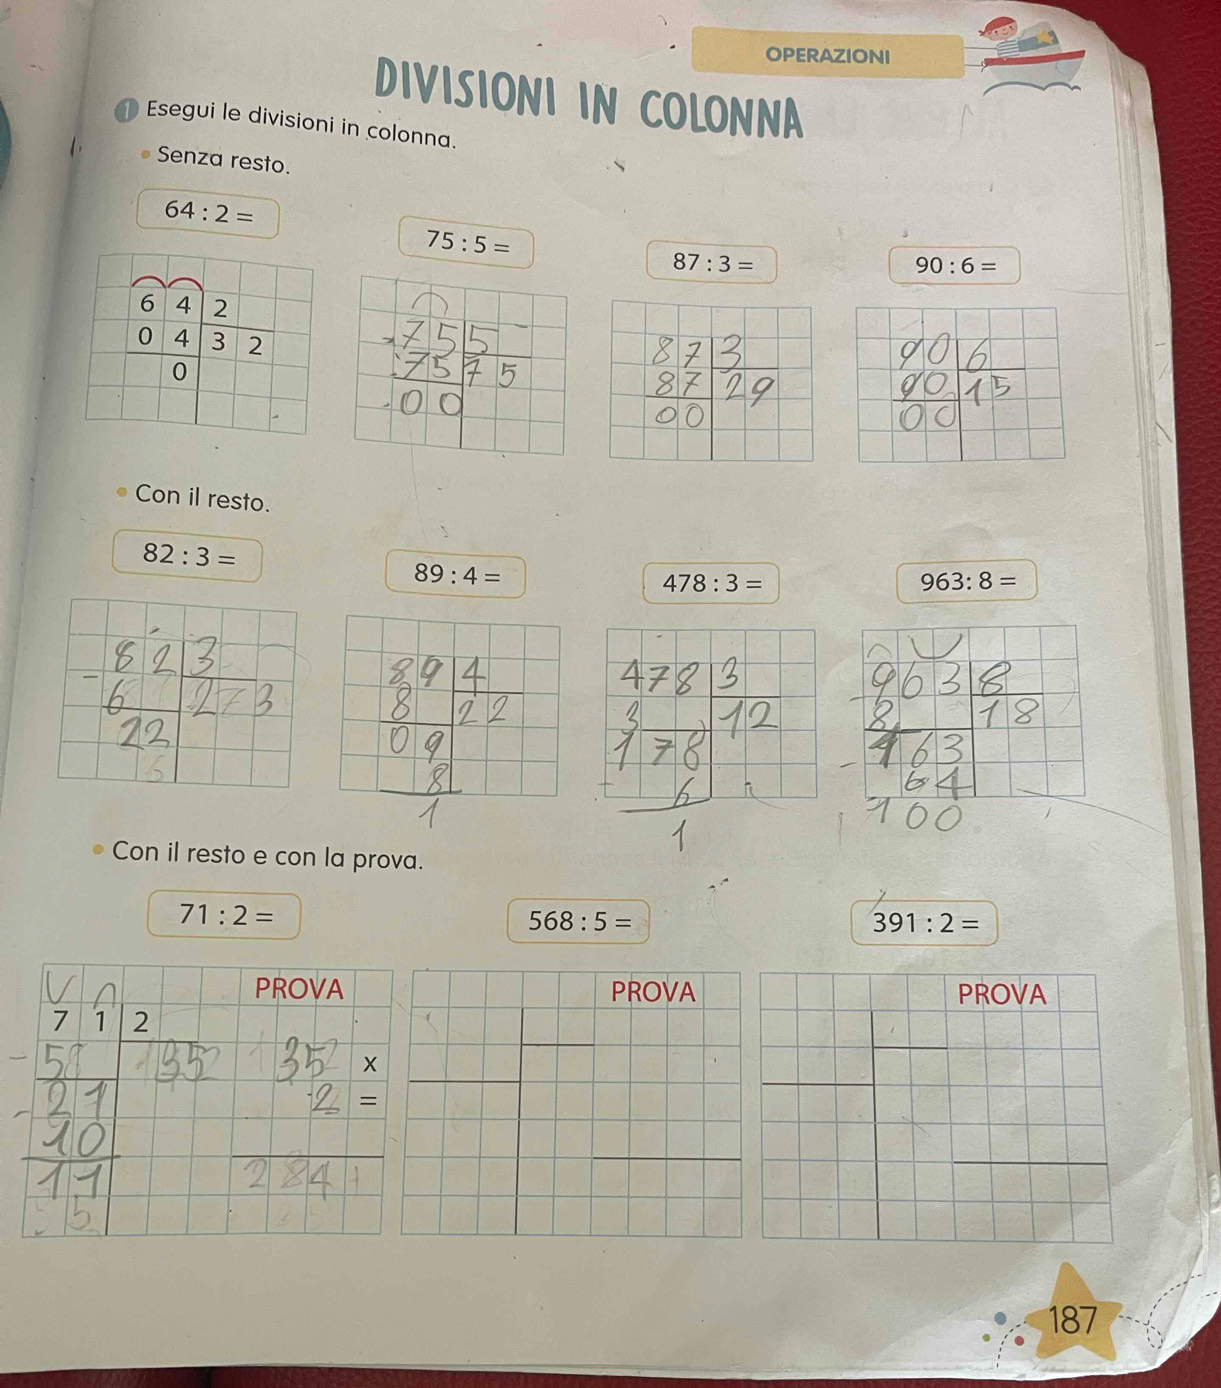 OPERAZIONI
DIVISIONI IN COLONNA
1 Esegui le divisioni in colonna.
• Senza resto.
64 : 2 =
75 : 5 =
87 : 3 =
90 : 6 =
6 4 2
0 4 3 2
0
- 7 5 5
7 5 7 5
0 0
8 7 3
8 7 2 9
0 0
9 0 6
9 0 1 5
0 0
• Con il resto.
82 : 3 =
89 : 4 =
478 : 3 =
963: 8 =
8 2 3
- 6 2 7 3
2 2
8 9 4
8 2 2
0 9
8
1
4 7 8 3
3 1 2
1 7 8
- 6
1
9 6 3 8
- 8 1 8
- 1 6 3
6 4
1 0 0
• Con il resto e con la prova.
71 : 2 =
568 : 5 =
391 : 2 =
PROVA
7 1 2
- 5 35 35 x
2 1 2 =
- 1 0
1 1 2 8 4
5
PROVA
PROVA
187